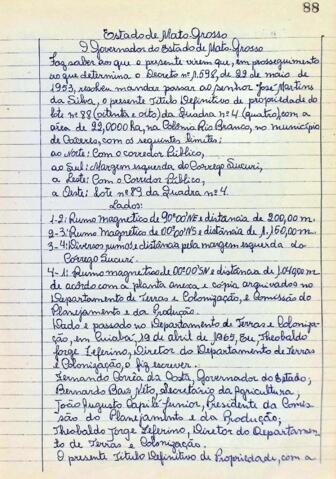 88
Estado de Mato-Grosso
O Governador do Estado de Mato-Grosso
Faz saber ao que o presente virem que, em prosseguimento
ao que determina o Decreto nº 1.598, de 22 de maio de
1953, resolveu mandar passar ao senhor José Martins
da Silva, o presente Titulo Definitivo de propriedade do
lote nº 88 (oitenta e oito) da Quadra nº 4 (quatro) com a
area de 22,0000 ha, na Colônia Rio Branco, no municipio
de Caceres, com os seguintes limites:
ao Norte: Com o corredor Público,
ao Sul: Margem esquerda do Corrego Sucuri,
a Leste: Com o Corredor Público,
a Oeste: Lote nº 89 da Quadra nº 4.
Lados:
1-2: Rumo magnetico de 90°00'NE e distancia de 200,00 m.
2-3: Rumo magnetico de 00°00'NS e distancia de 1.160,00 m.
3-4: Diversos rumos e distancia pela margem esquerda do
Corrego Sucuri.
4-1: Rumo magnetico de 00°00'SN e distancia de 1.040,00 m.
de acordo com a planta anexa e cópia arquivados no
Departamento de Terras e Colonização, e Comissão do
Planejamento e da Produção.
Dado e passado no Departamento de Terras e Coloniza-
ção, em Cuiabá, 19 de abril de 1965, Eu Theobaldo
Jorge Zeferino, Diretor do Departamento de Terras
e Colonização, o fiz escrever:
Fernando Corrêa da Costa, Governador do Estado;
Bernardo Bais Neto, Secretário da Agricultura;
João Augusto Capilé Junior, Presidente da Comis-
são do Planejamento e da Produção;
Theobaldo Jorge Zeferino, Diretor do Departamen-
to de Terras e Colonização.
O presente Titulo Definitivo de Propriedade, com a